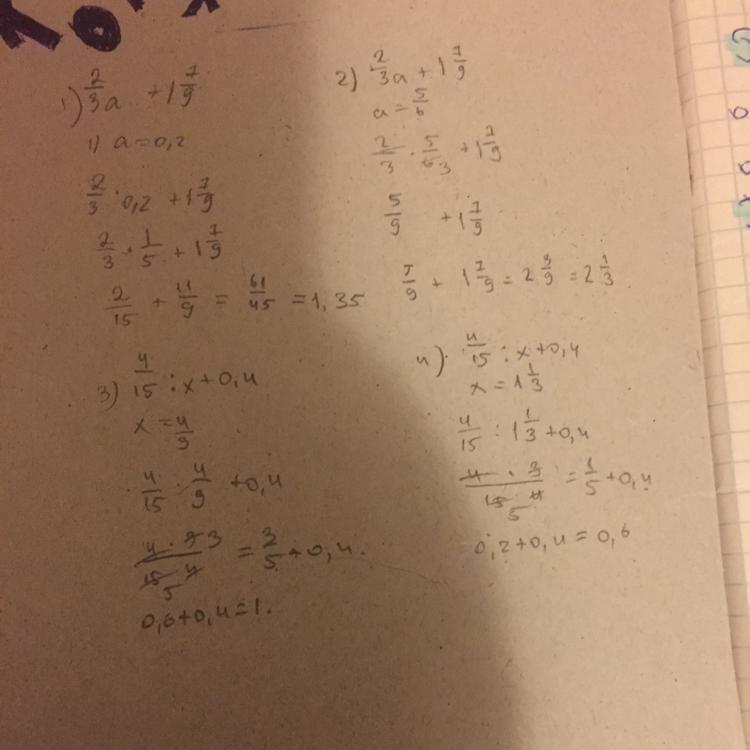 1) 2/3 a + 1 7/9
1) a = 0,2
2/3 · 0,2 + 1 7/9
2/3 · 1/5 + 1 7/9
2/15 + 11/9 = 61/45 = 1,35
2) 2/3 a + 1 7/9
a = 5/6
2/3 · 5/6 3 + 1 7/9
5/9 + 1 7/9
5/9 + 1 7/9 = 2 3/9 = 2 1/3
3) 4/15 : x + 0,4
x = 4/9
4/15 : 4/9 + 0,4
4 · 9 3 / 15 5 4 = 3/5 + 0,4.
0,6 + 0,4 = 1.
4) 4/15 : x + 0,4
x = 1 1/3
4/15 : 1 1/3 + 0,4
4 · 3 / 15 5 4 = 1/5 + 0,4
0,2 + 0,4 = 0,6